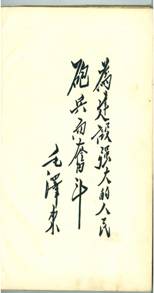 為建設強大的人民
砲兵而奮斗
毛澤東